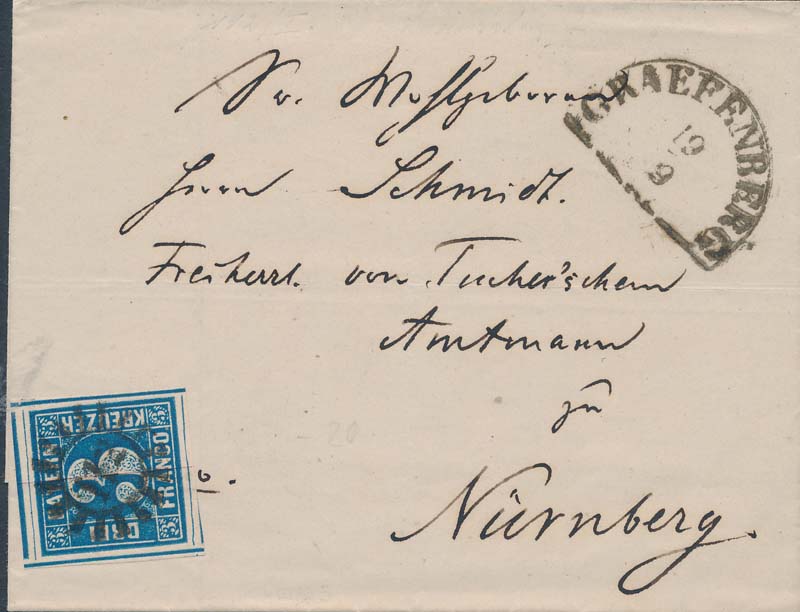 GRAEFENBERG
19
9
Sr. Wohlgeboren
Herrn Schmidt.
Freiherrl. von Tucher'schem
Amtmann
zu
Nürnberg.
BAYERN
KREUZER
FRANCO
DREI
3
20